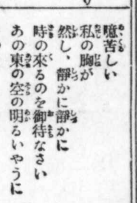 噫苦しい
私の胸が
然し、靜かに靜かに
時の來るのを御待なさい
あの東の空の明るいやうに